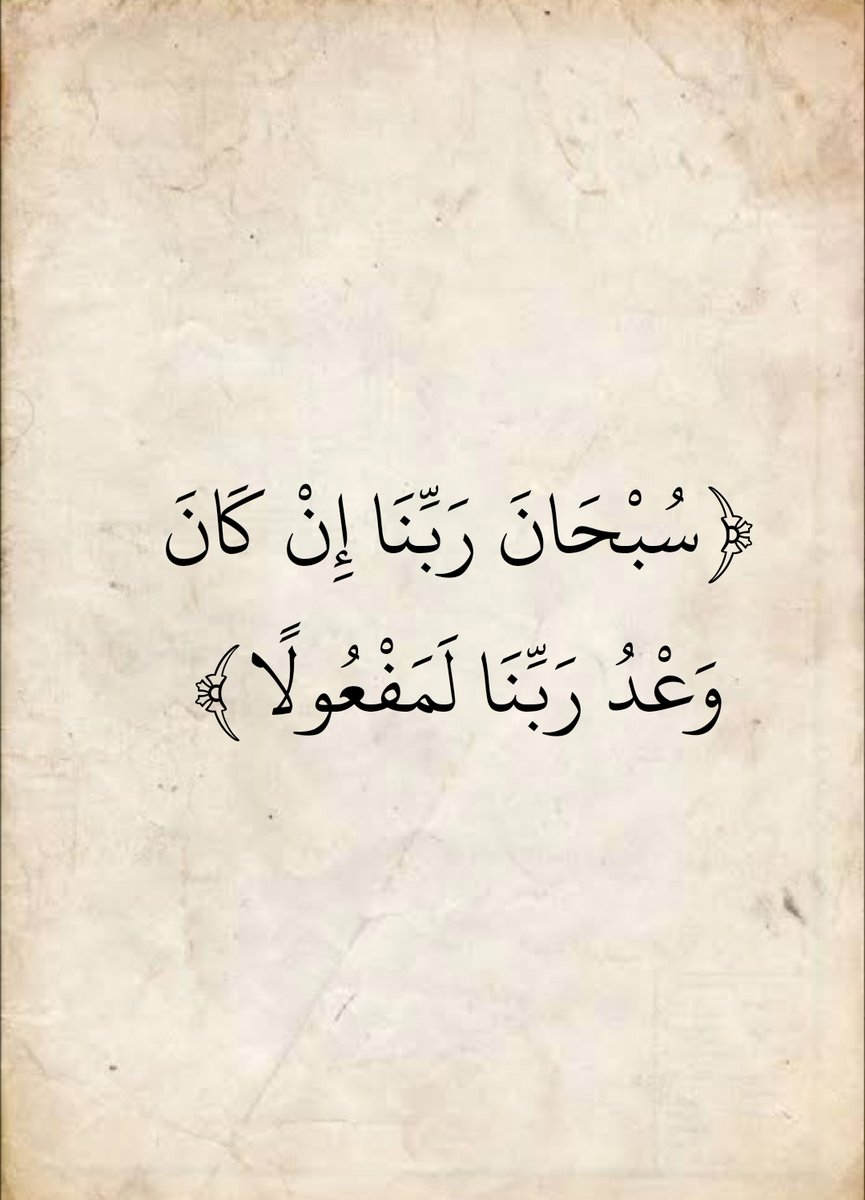 ﴿سُبْحَانَ رَبِّنَا إِنْ كَانَ
وَعْدُ رَبِّنَا لَمَفْعُولًا﴾